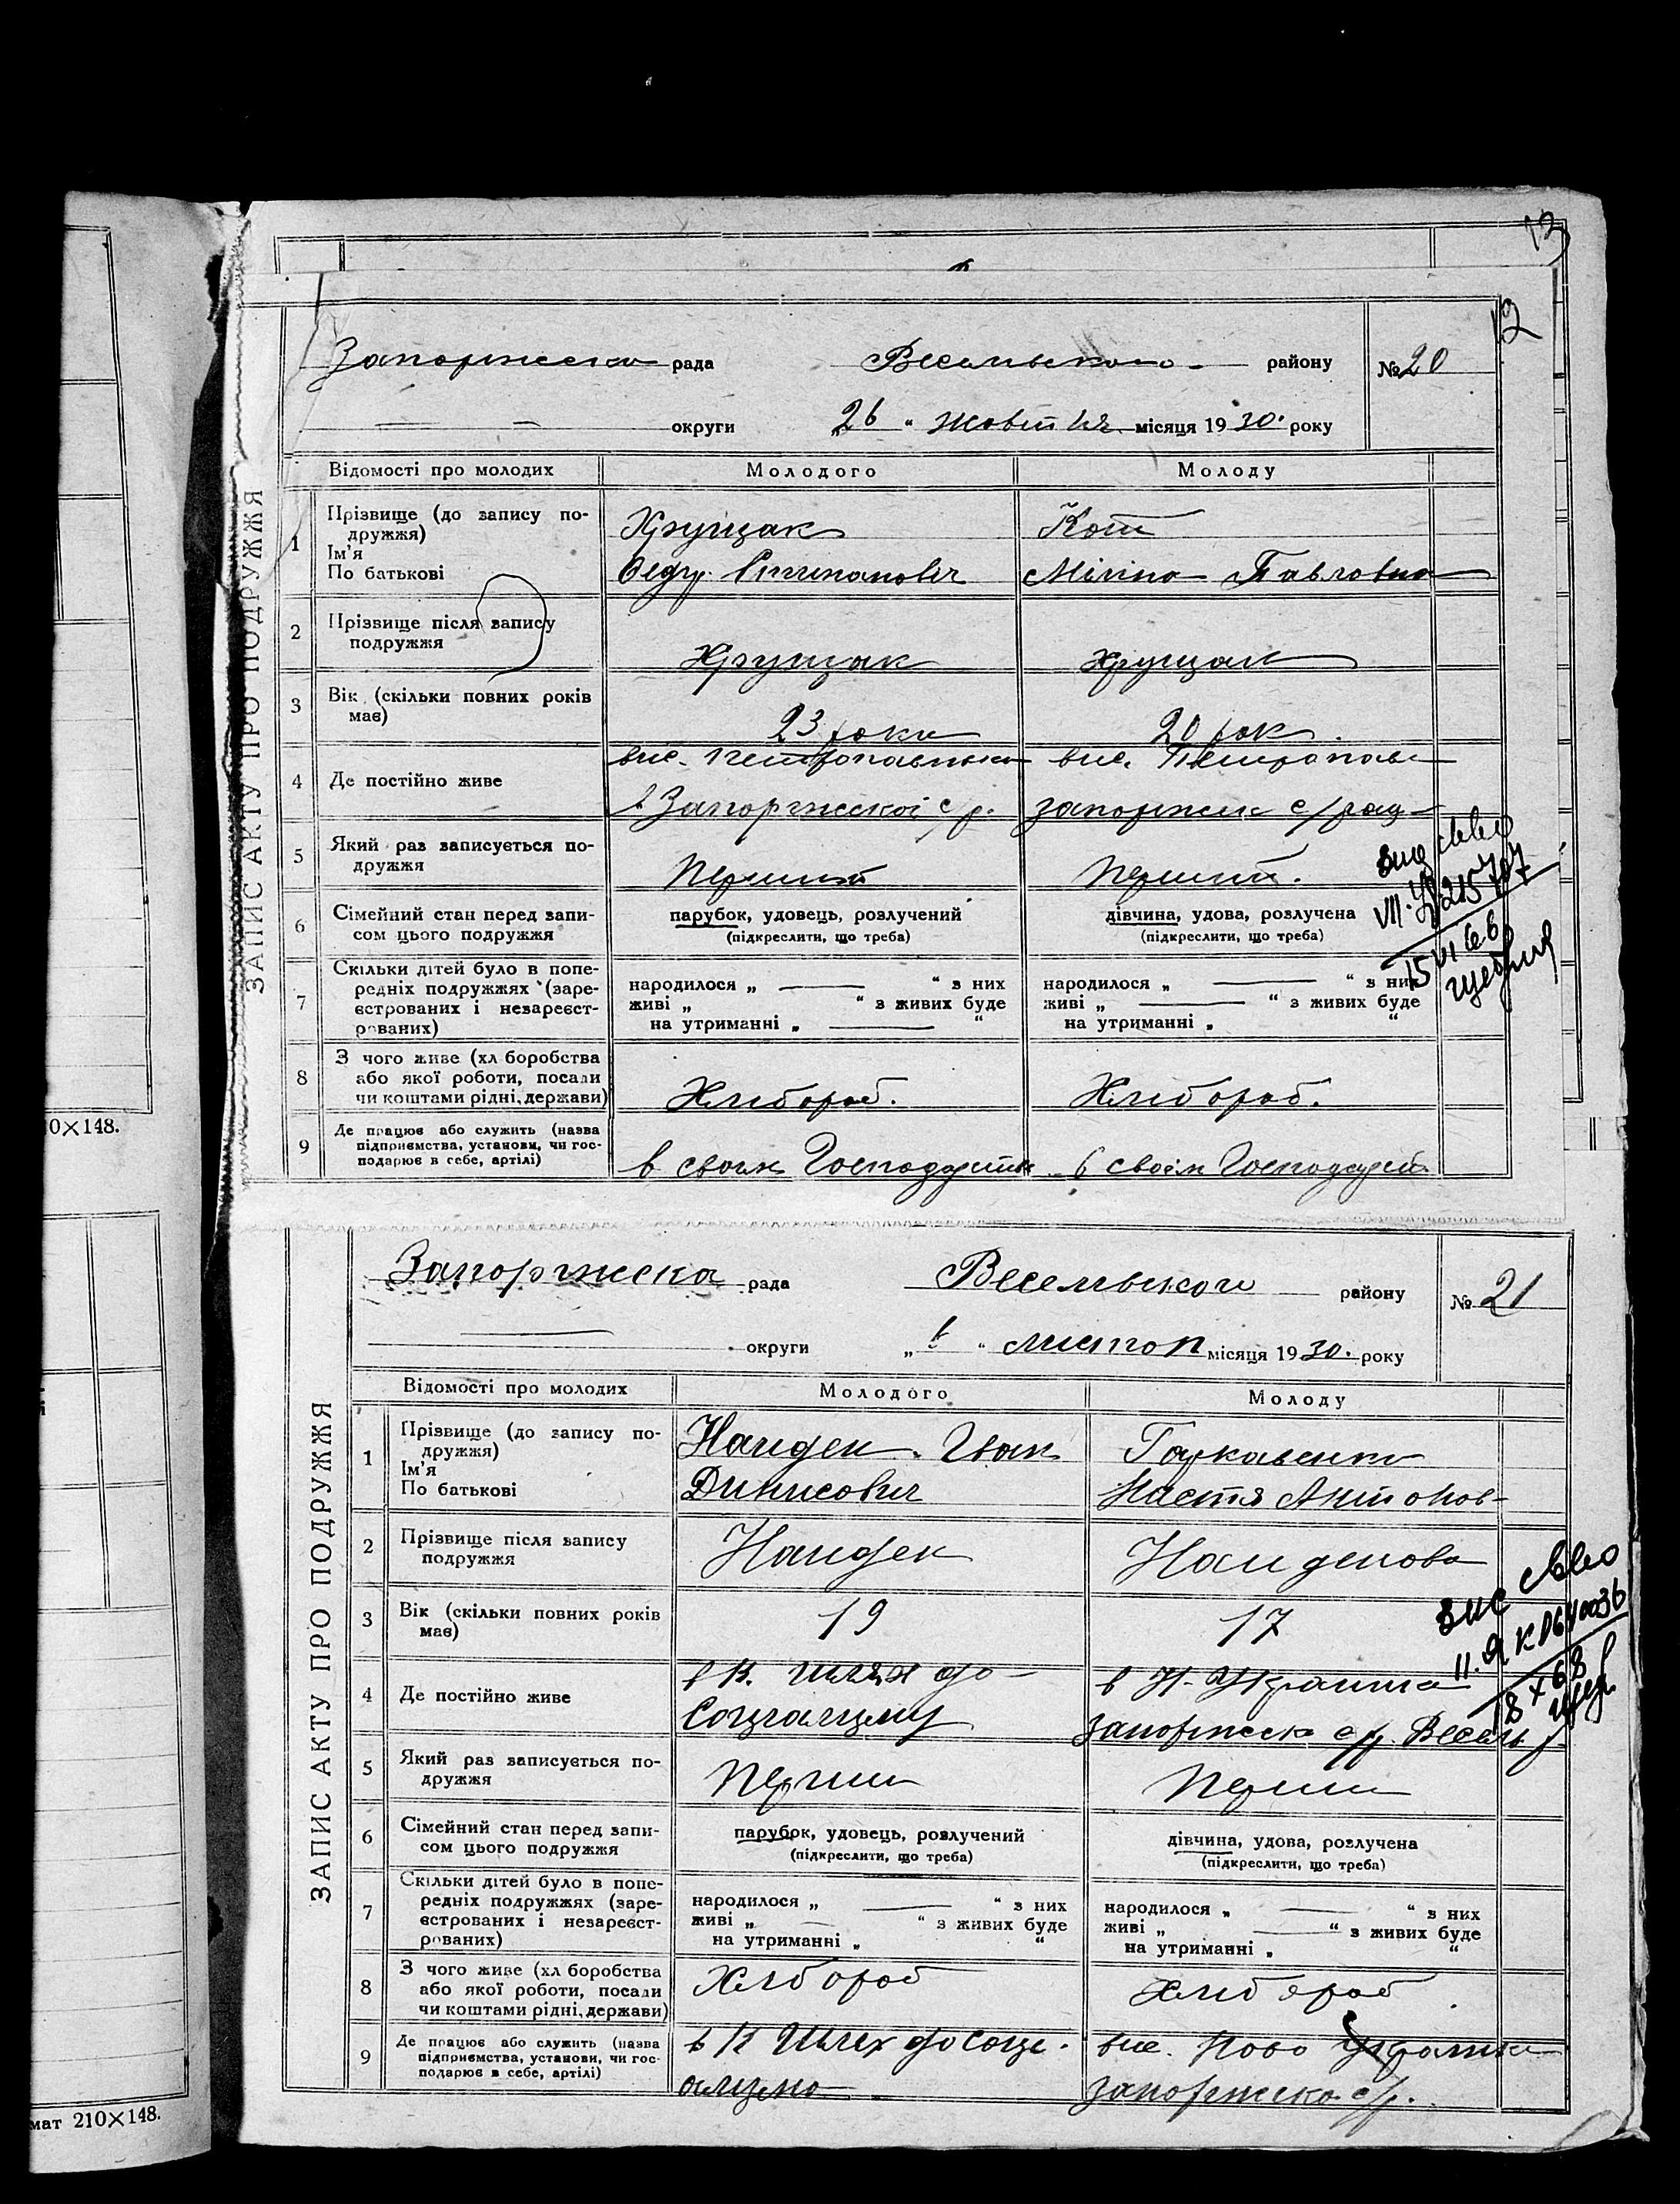 13
12
ЗАПИС АКТУ ПРО ПОДРУЖЖЯ
Запоржеска рада Весельського району № 20
округи „26“ жовтня місяця 1930. року
Відомості про молодих Молодого Молоду
1 Прізвище (до запису по-
дружжя)
Ім'я
По батькові
Хрущак
Кот
Павловна
2 Прізвище після запису
подружжя
Хрущак Хрущак
3 Вік (скільки повних років
має)
23 роки 20 рок.
4 Де постійно живе
вис. вис. Петропав
в Запоржескої с/р. запоржск с/рад
5 Який раз записується по-
дружжя
Перший Перший.
6 Сімейний стан перед запи-
сом цього подружжя
парубок, удовець, розлучений
(підкреслити, що треба)
дівчина, удова, розлучена
(підкреслити, що треба)
7 Скільки дітей було в попе-
редніх подружжях (заре-
єстрованих і незареєст-
рованих)
народилося „ “ з них
живі „ “ з живих буде
на утриманні „ “
народилося „ “ з них
живі „ “ з живих буде
на утриманні „ “
8 З чого живе (хл боробства
або якої роботи, посади
чи коштами рідні, держави)
Хлібороб. Хлібороб.
9 Де працює або служить (назва
підприємства, установи, чи гос-
подарює в себе, артілі)
в своїм Господарстві в своїм Господарств
215707
15 VI 66
ЗАПИС АКТУ ПРО ПОДРУЖЖЯ
Запоржеска рада Весельського району № 21
округи „1“ листоп місяця 1930. року
Відомості про молодих Молодого Молоду
1 Прізвище (до запису по-
дружжя)
Ім'я
По батькові
Найден Іван
Динисович
Гаркавенко
Настя Антонов-
2 Прізвище після запису
подружжя
Найден Найденова
3 Вік (скільки повних років
має)
19 17
4 Де постійно живе
в К. шлях до
Соціалізму
в Н-Українка
Запоржеск с/р. Весель р.
5 Який раз записується по-
дружжя
Перши Перши
6 Сімейний стан перед запи-
сом цього подружжя
парубок, удовець, розлучений
(підкреслити, що треба)
дівчина, удова, розлучена
(підкреслити, що треба)
7 Скільки дітей було в попе-
редніх подружжях (заре-
єстрованих і незареєст-
рованих)
народилося „ “ з них
живі „ “ з живих буде
на утриманні „ “
народилося „ “ з них
живі „ “ з живих буде
на утриманні „ “
8 З чого живе (хл боробства
або якої роботи, посади
чи коштами рідні, держави)
Хлібороб Хлібороб
9 Де працює або служить (назва
підприємства, установи, чи гос-
подарює в себе, артілі)
в К Шлях до Соці-
алізмо
вис. Ново Українка
запоржеско с/р.
18 X 68
0×148.
мат 210×148.